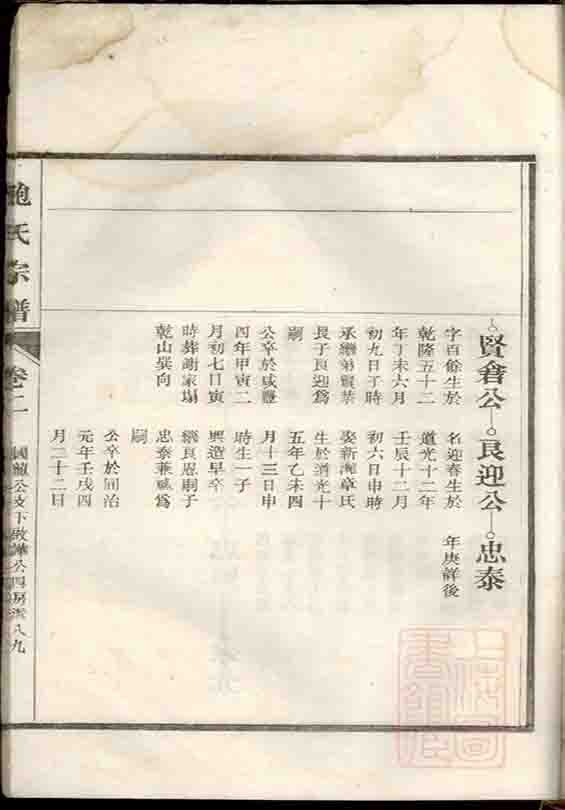 賢倉公 良迎公 忠泰
字百餘生於
乾隆五十二
年丁未六月
初九日子時
承繼弟賢榮
長子良迎為
嗣
公卒於咸豐
四年甲寅二
月初七日寅
時葬謝家塌
乾山巽向
名迎春生於
道光十二年
壬辰十二月
初六日申時
娶新灘章氏
生於道光十
五年乙未四
月十三日申
時生一子
興造早卒
繼良恩嗣子
忠泰兼祧為
嗣
公卒於同治
元年壬戌四
月二十二日
年庚詳後
鮑氏宗譜
卷二
國龍公支下 公四房 八九
上海圖書館藏